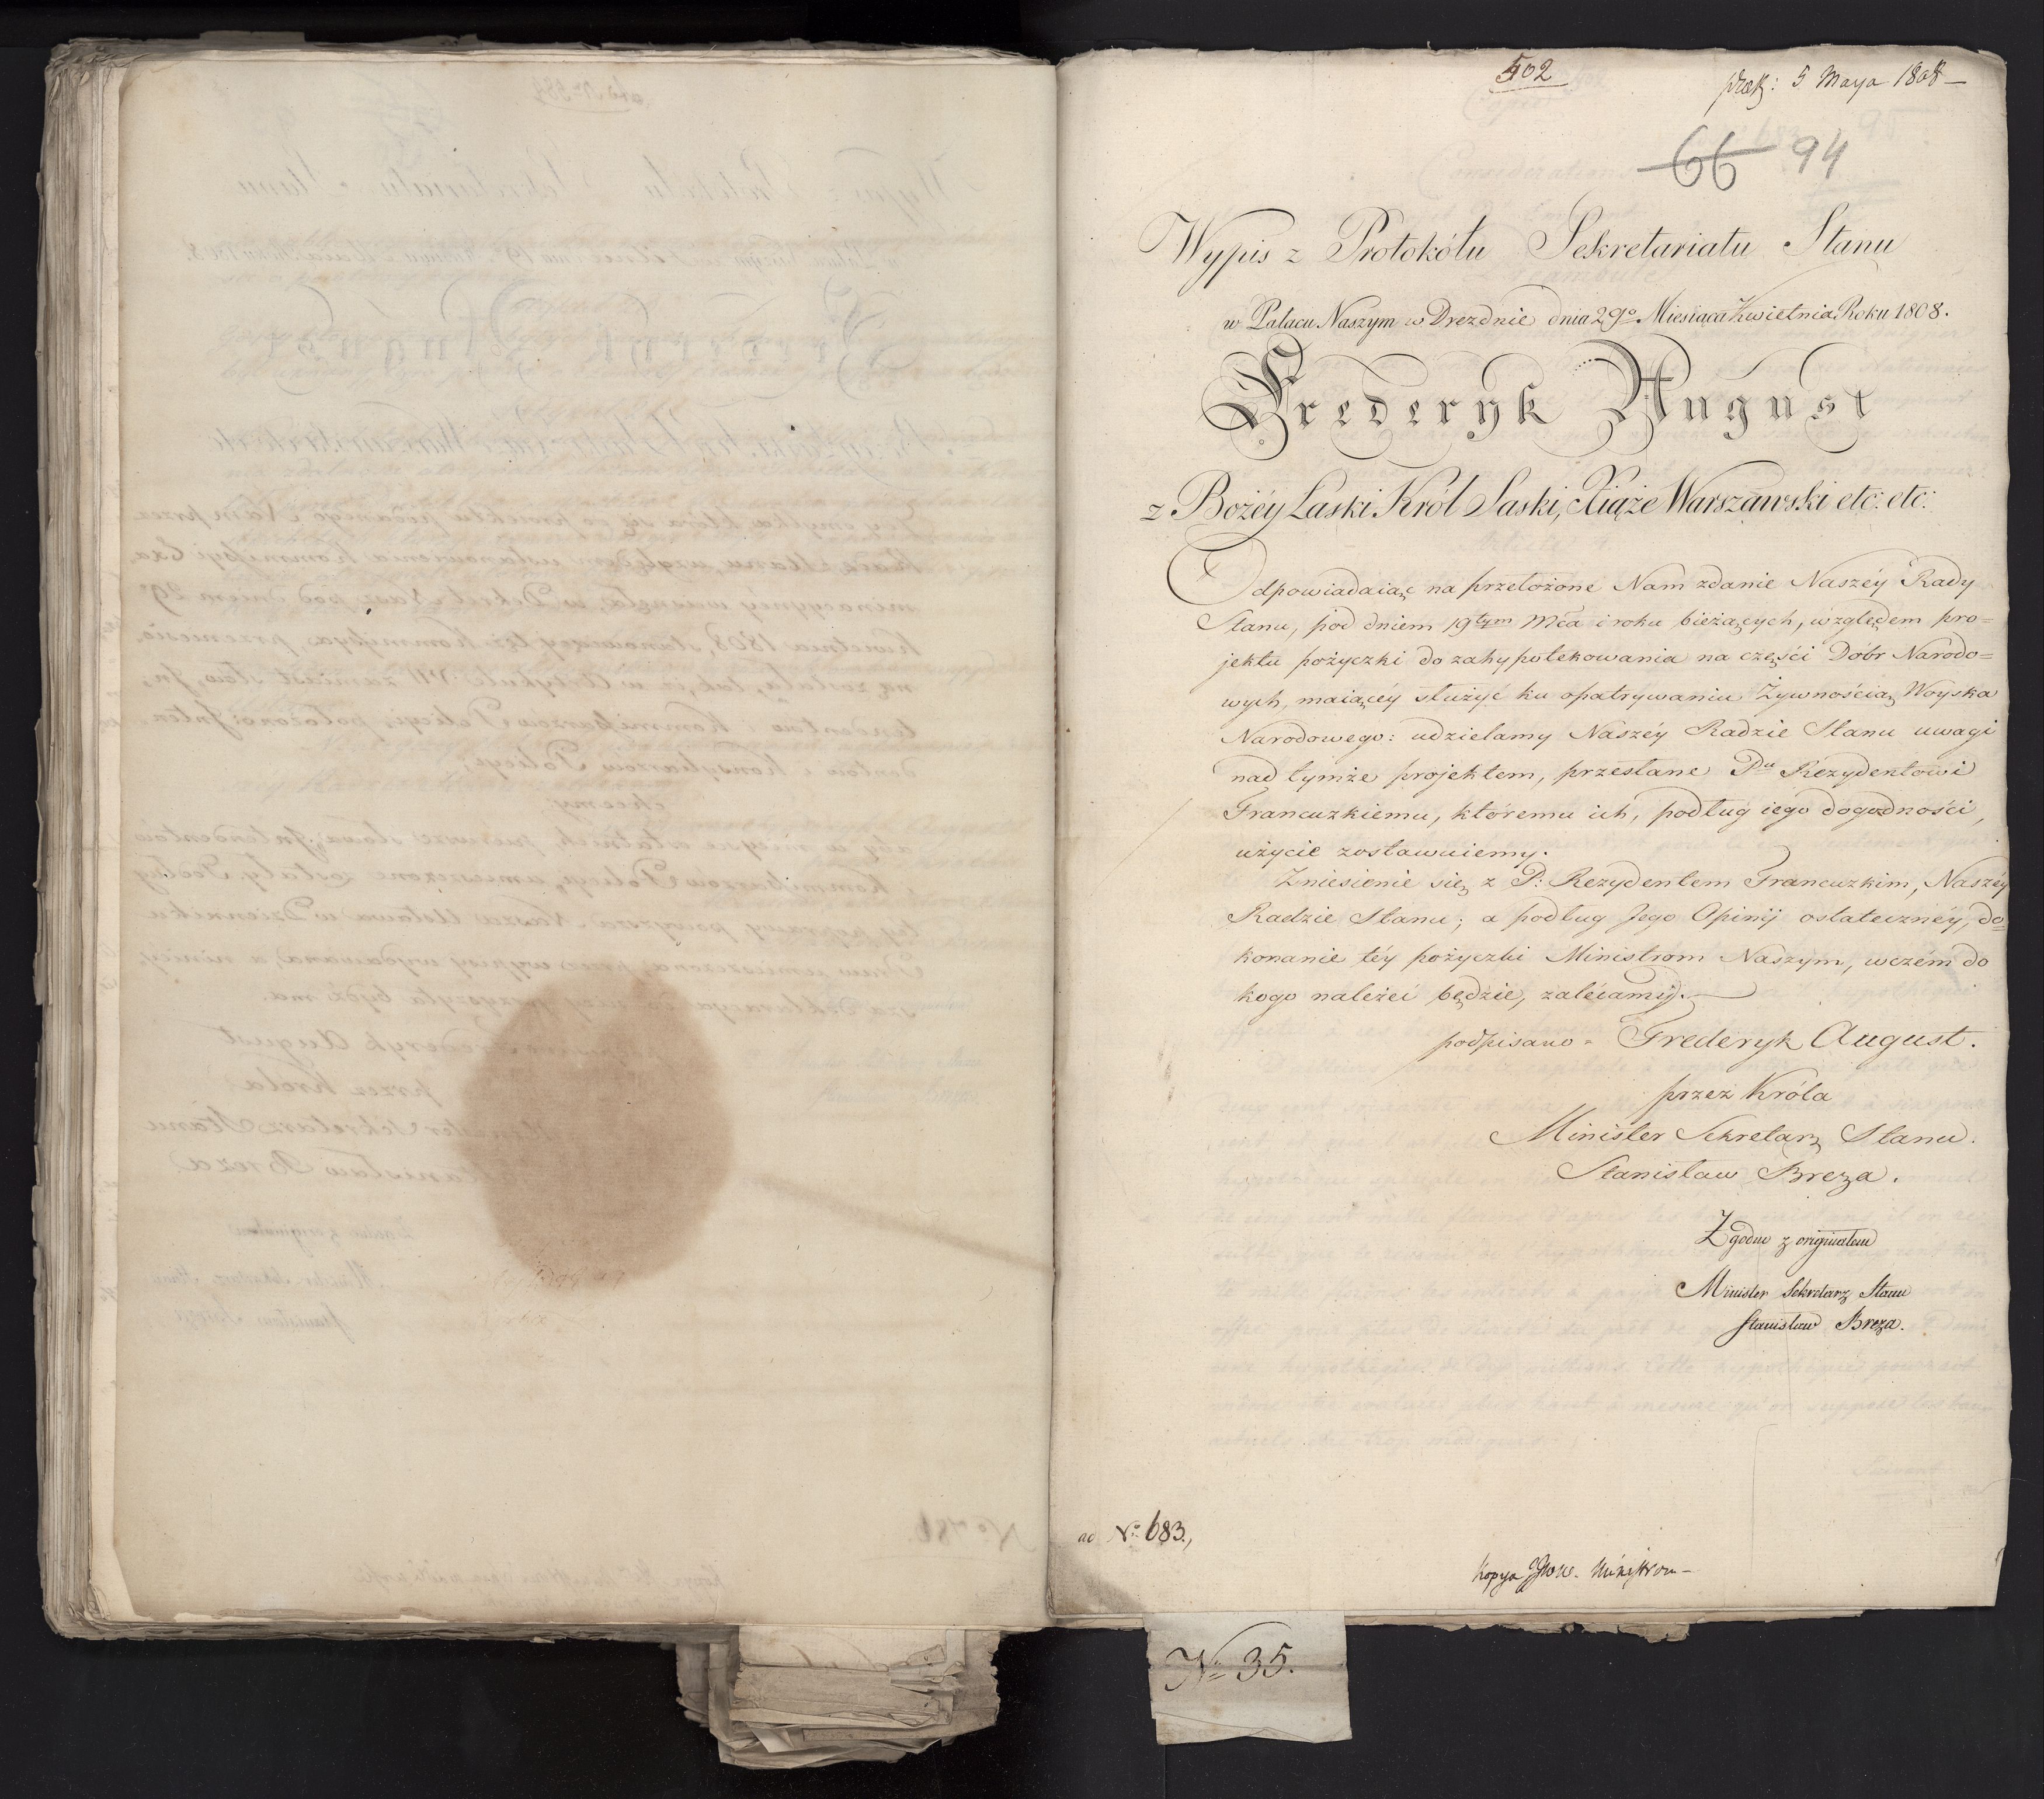 502
5 Maya 1808 —
66 94
Wypis z Protokółu Sekretariatu Stanu
w Pałacu Naszym w Dreznie dnia 29º Miesiąca Kwietnia Roku 1808.
Frederyk August
z Bożéy Łaski Król Saski, Xiąże Warszawski etc: etc:
Odpowiadaiąc na przełożone Nam zdanie Naszéy Rady
Stanu, pod dniem 19tym Mca i roku bieżących, względem pro=
jektu pożyczki do zahypotekowania na części Dóbr Narodo=
wych, maiącéy służyć ku opatrywaniu Żywnością Woyska
Narodowego: udzielamy Naszéy Radzie Stanu uwagi
nad tymże projektem, przesłane Pu Rezydentowi
Francuzkiemu, któremu ich, podług iego dogodności,
użycie zostawuiemy.
Zniesienie się z P: Rezydentem Francuzkim, Naszéy
Radzie Stanu; a podług Jego Opinij ostatecznéy, do=
konanie téy pożyczki Ministrom Naszym, wczém do
kogo należéć będzie, zalécamy.
podpisano = Frederyk August.
przez Króla
Minister Sekretarz Stanu.
Stanisław Breza.
Zgodno z originałem
Minister Sekretarz Stanu
Stanisław Breza.
ad Nº 683.,
Kopya JWW. Ministrom —
Nº 35.